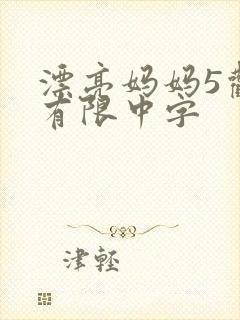 漂亮妈妈5
有限中字
津轻